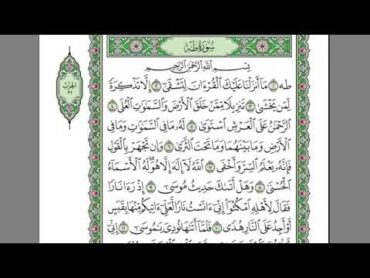 سُورَةُ طه
بِسْمِ اللَّهِ الرَّحْمَٰنِ الرَّحِيمِ
طه ١ مَا أَنزَلْنَا عَلَيْكَ الْقُرْءَانَ لِتَشْقَىٰ ٢ إِلَّا تَذْكِرَةً
لِّمَن يَخْشَىٰ ٣ تَنزِيلًا مِّمَّنْ خَلَقَ الْأَرْضَ وَالسَّمَٰوَٰتِ الْعُلَى ٤
الرَّحْمَٰنُ عَلَى الْعَرْشِ اسْتَوَىٰ ٥ لَهُ مَا فِي السَّمَٰوَٰتِ وَمَا فِي
الْأَرْضِ وَمَا بَيْنَهُمَا وَمَا تَحْتَ الثَّرَىٰ ٦ وَإِن تَجْهَرْ بِالْقَوْلِ
فَإِنَّهُ يَعْلَمُ السِّرَّ وَأَخْفَى ٧ اللَّهُ لَا إِلَٰهَ إِلَّا هُوَ لَهُ الْأَسْمَاءُ
الْحُسْنَىٰ ٨ وَهَلْ أَتَىٰكَ حَدِيثُ مُوسَىٰ ٩ إِذْ رَءَا نَارًا
فَقَالَ لِأَهْلِهِ امْكُثُوا إِنِّي ءَانَسْتُ نَارًا لَّعَلِّي ءَاتِيكُم مِّنْهَا بِقَبَسٍ
أَوْ أَجِدُ عَلَى النَّارِ هُدًى ١٠ فَلَمَّا أَتَىٰهَا نُودِيَ يَٰمُوسَىٰ ١١ إِنِّي